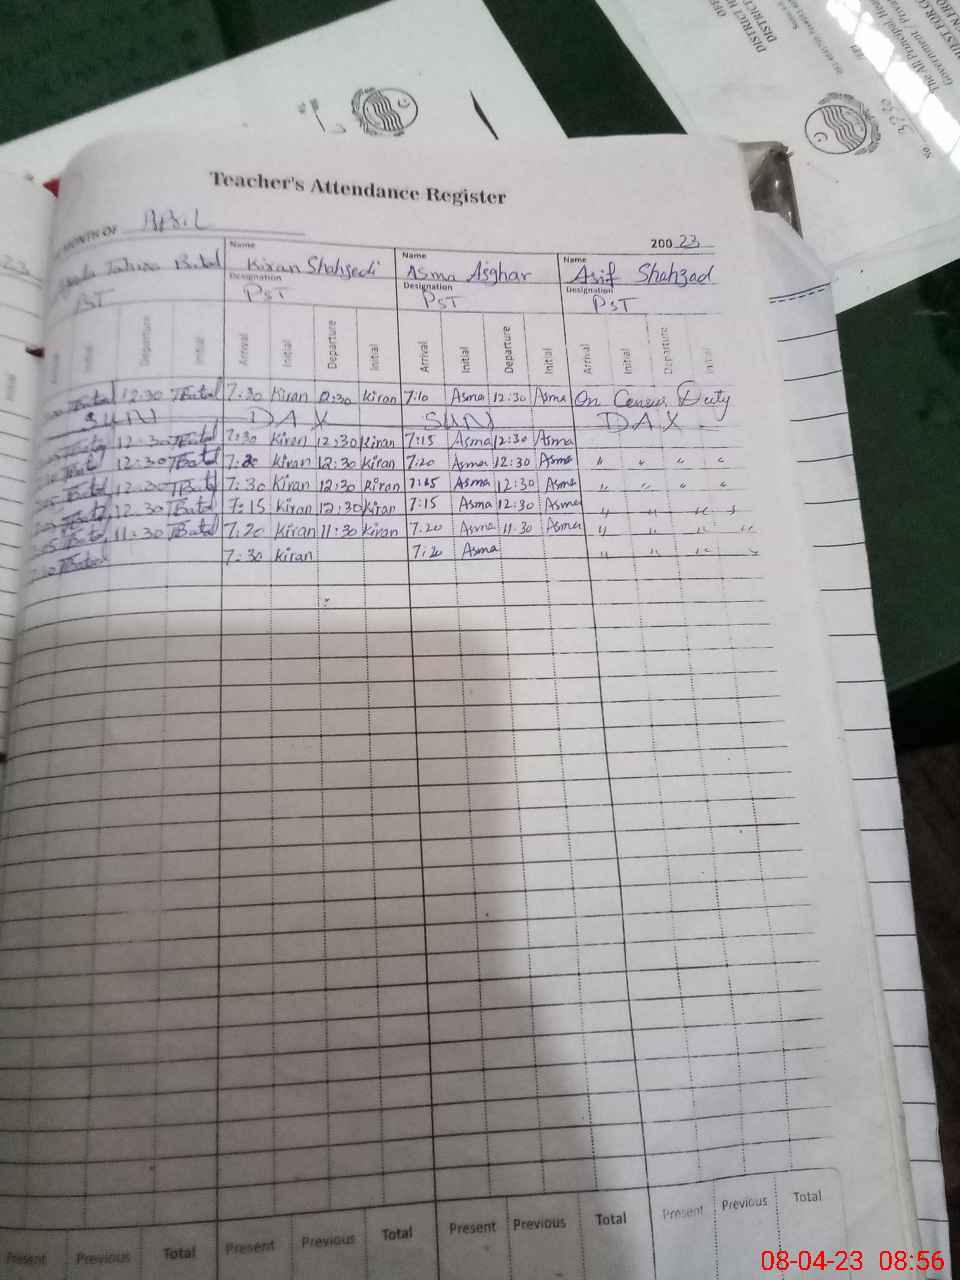 Teacher's Attendance Register
MONTH OF April
200 23
Name Name Name
Tahira Batol Kiran Shahzedi Asma Asghar Asif Shahzad
Designation Designation Designation
PST PST PST PST
Initial Departure Initial Arrival Initial Departure Initial Arrival Initial Departure Initial Arrival Initial Departure Initial
12:30 TBatol 7:30 Kiran 12:30 Kiran 7:10 Asma 12:30 Asma On Census Duty
SUN DAY SUN DAY
12:30 TBatol 7:30 Kiran 12:30 Kiran 7:15 Asma 12:30 Asma
12:30 TBatol 7:20 Kiran 12:30 Kiran 7:20 Asma 12:30 Asma " " " "
12:30 TBatol 7:30 Kiran 12:30 Kiran 7:15 Asma 12:30 Asma " " " "
12:30 TBatol 7:15 Kiran 12:30 Kiran 7:15 Asma 12:30 Asma " " " "
11:30 TBatol 7:20 Kiran 11:30 Kiran 7:20 Asma 11:30 Asma " " " "
TBatol 7:30 Kiran 7:20 Asma " " " "
Present Previous Total Present Previous Total Present Previous Total Present Previous Total
08-04-23 08:56